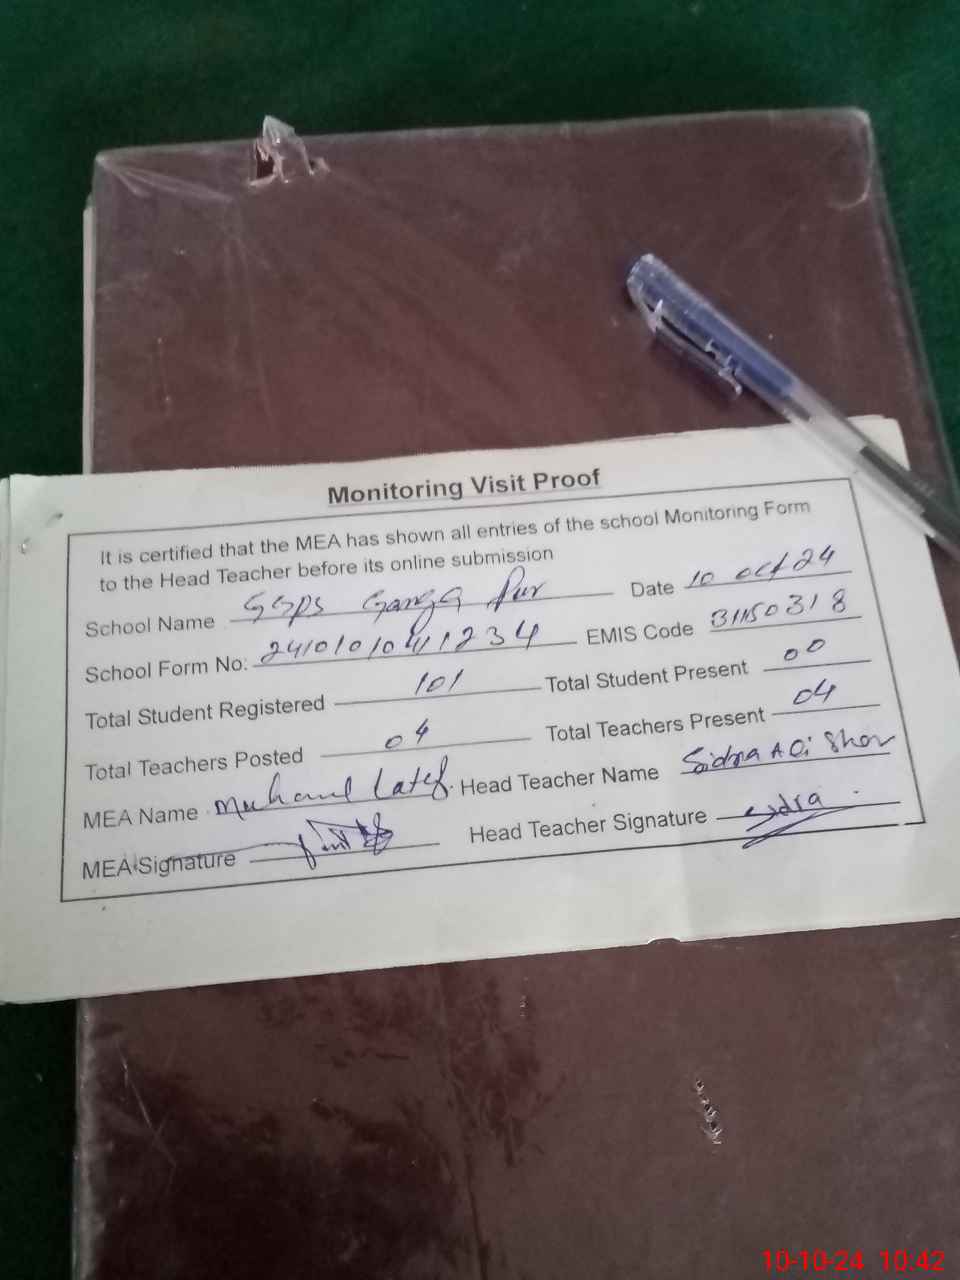 Monitoring Visit Proof
It is certified that the MEA has shown all entries of the school Monitoring Form
to the Head Teacher before its online submission
School Name GGPS Ganga Pur Date 10 oct 24
School Form No: EMIS Code 31150318
Total Student Registered 101 Total Student Present 00
Total Teachers Posted 04 Total Teachers Present 04
MEA Name Latef. Head Teacher Name Sidra
MEA Signature Head Teacher Signature Sidra
10-10-24 10:42